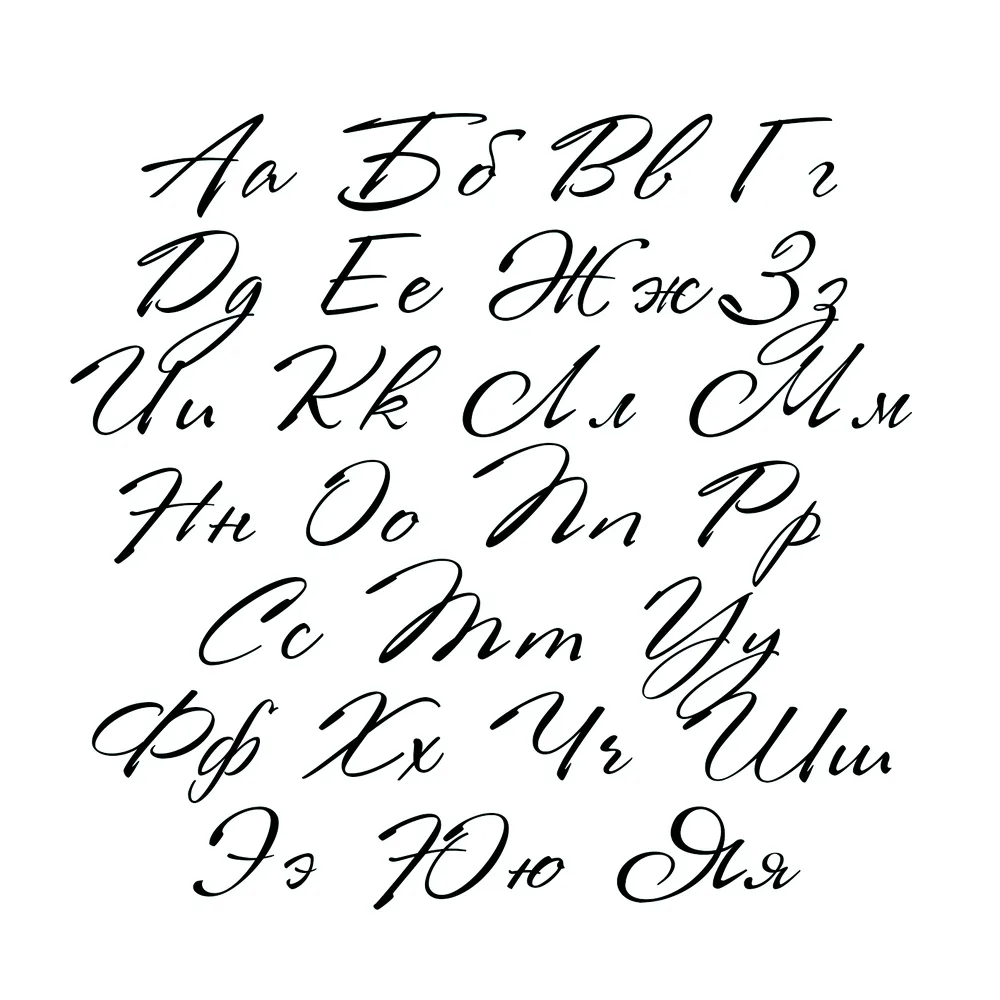 Аа Бб Вв Гг
Дд Ее Жж Зз
Ии Кк Лл Мм
Нн Оо Пп Рр
Сс Тт Уу
Фф Хх Чч Шш
Ээ Юю Яя